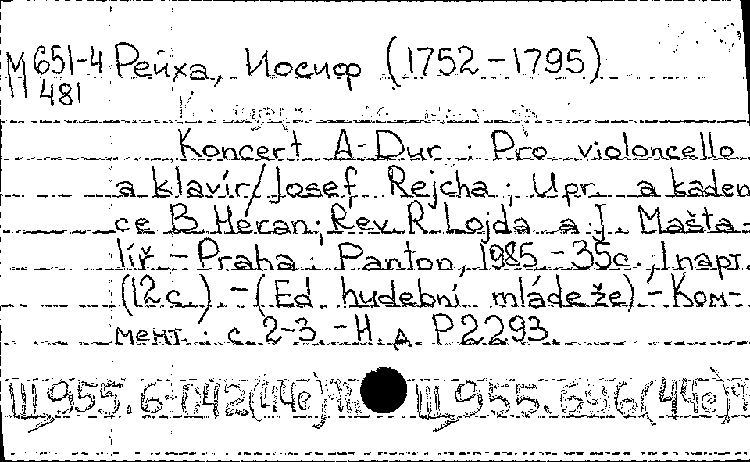 М 651-4 Рейха, Иосиф (1752-1795)
481
Koncert A-Dur : Pro violoncello
a klavír/Josef Rejcha; Upr. a kaden
ce B. Heran; Rev. R. Lojda a J. Mašta-
líř. - Praha : Panton, 1985. - 35с., 1 парт.
(12с.). - (Ed. hudební mládeže). - Ком-
мент.: с. 2-3. - Н. д. P2293.
Ш955.6-042(44е) Ш955.6